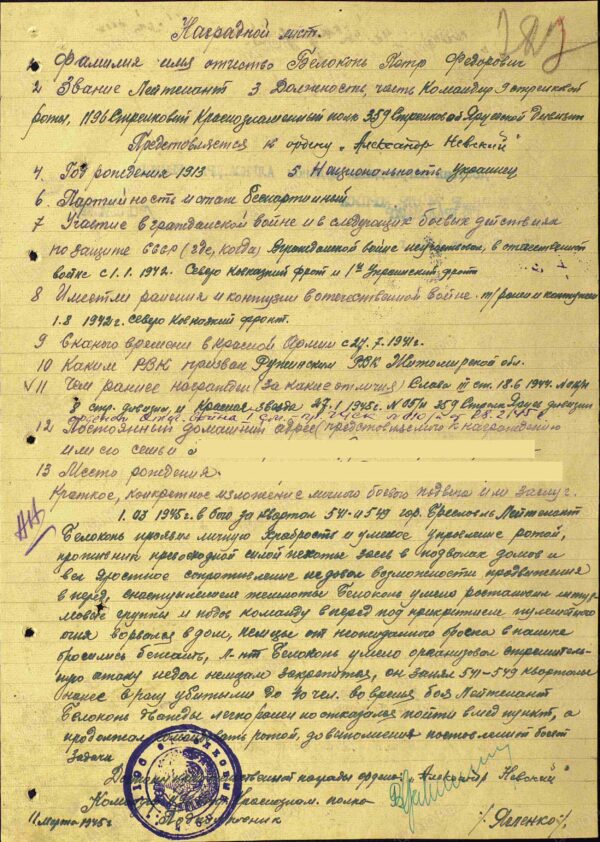 Наградной лист.
1 Фамилия имя отчество Белоконь Петр Федорович
2 Звание Лейтенант 3 Должность, часть Командир 9 стрелковой
роты, 1196 Стрелковый Краснознаменный полк 359 Стрелковой Ярцевской Дивизии
Представляется к ордену „Александр Невский"
4. Год рождения 1913 5 Национальность украинец
6. Партийность и стаж беспартийный
7 Участие в гражданской войне и в следующих боевых действиях
по защите СССР (где, когда) в гражданской войне не участвовал, в отечественной
войне с 1.1.1942г. Северо Кавказкий фронт и 1й Украинский фронт
8 Имеет ли ранения и контузии в отечественной войне. т/ранен и контужен
1.8 1942г. Северо Кавказкий фронт.
9 с какого времени в Красной Армии с 27.7.1941г.
10 Каким РВК призван Ружинским РВК Житомирской обл.
11 Чем раннее награжден (за какие отличия) Слава III ст. 18.6 1944.
8 стр. дивизии, и Красная звезда 27.1 1945г. 359 Стрелковой дивизии
28.2.45г.
12 Постоянный домашний адрес (представляемого к награждению
или его семьи
13 Место рождения
Краткое, конкретное изложение личного боевого подвига или заслуг.
1.03 1945г. в бою за квартал 541-и 549 гор. Бреславль Лейтенант
Белоконь проявил личную храбрость и умелое управление ротой,
противник превосходной силой засев в подвалах домов и
вел яростное сопротивление не давал возможности продвижения
в перед, с наступлением темноты Белоконь умело расставил
группы и подав команду вперед под прикрытием пулеметного
огня ворвался в дом, немцы от неожиданного броска в панике
бросились бежать, Л-нт Белоконь умело организовал стремитель-
ную атаку не дал немцам закрепится, он занял 541-549 кварталы
нанес врагу убитыми до 40 чел. во время боя Лейтенант
Белоконь дважды легко ранен но отказался пойти в мед пункт, а
продолжал командовать ротой, до выполнения поставленной боевой
задачи.
Достоин правительственной награды ордена „Александр Невский"
Командир Краснознам. полка
Подполковник /Ягленко/.
11 Марта 1945г.